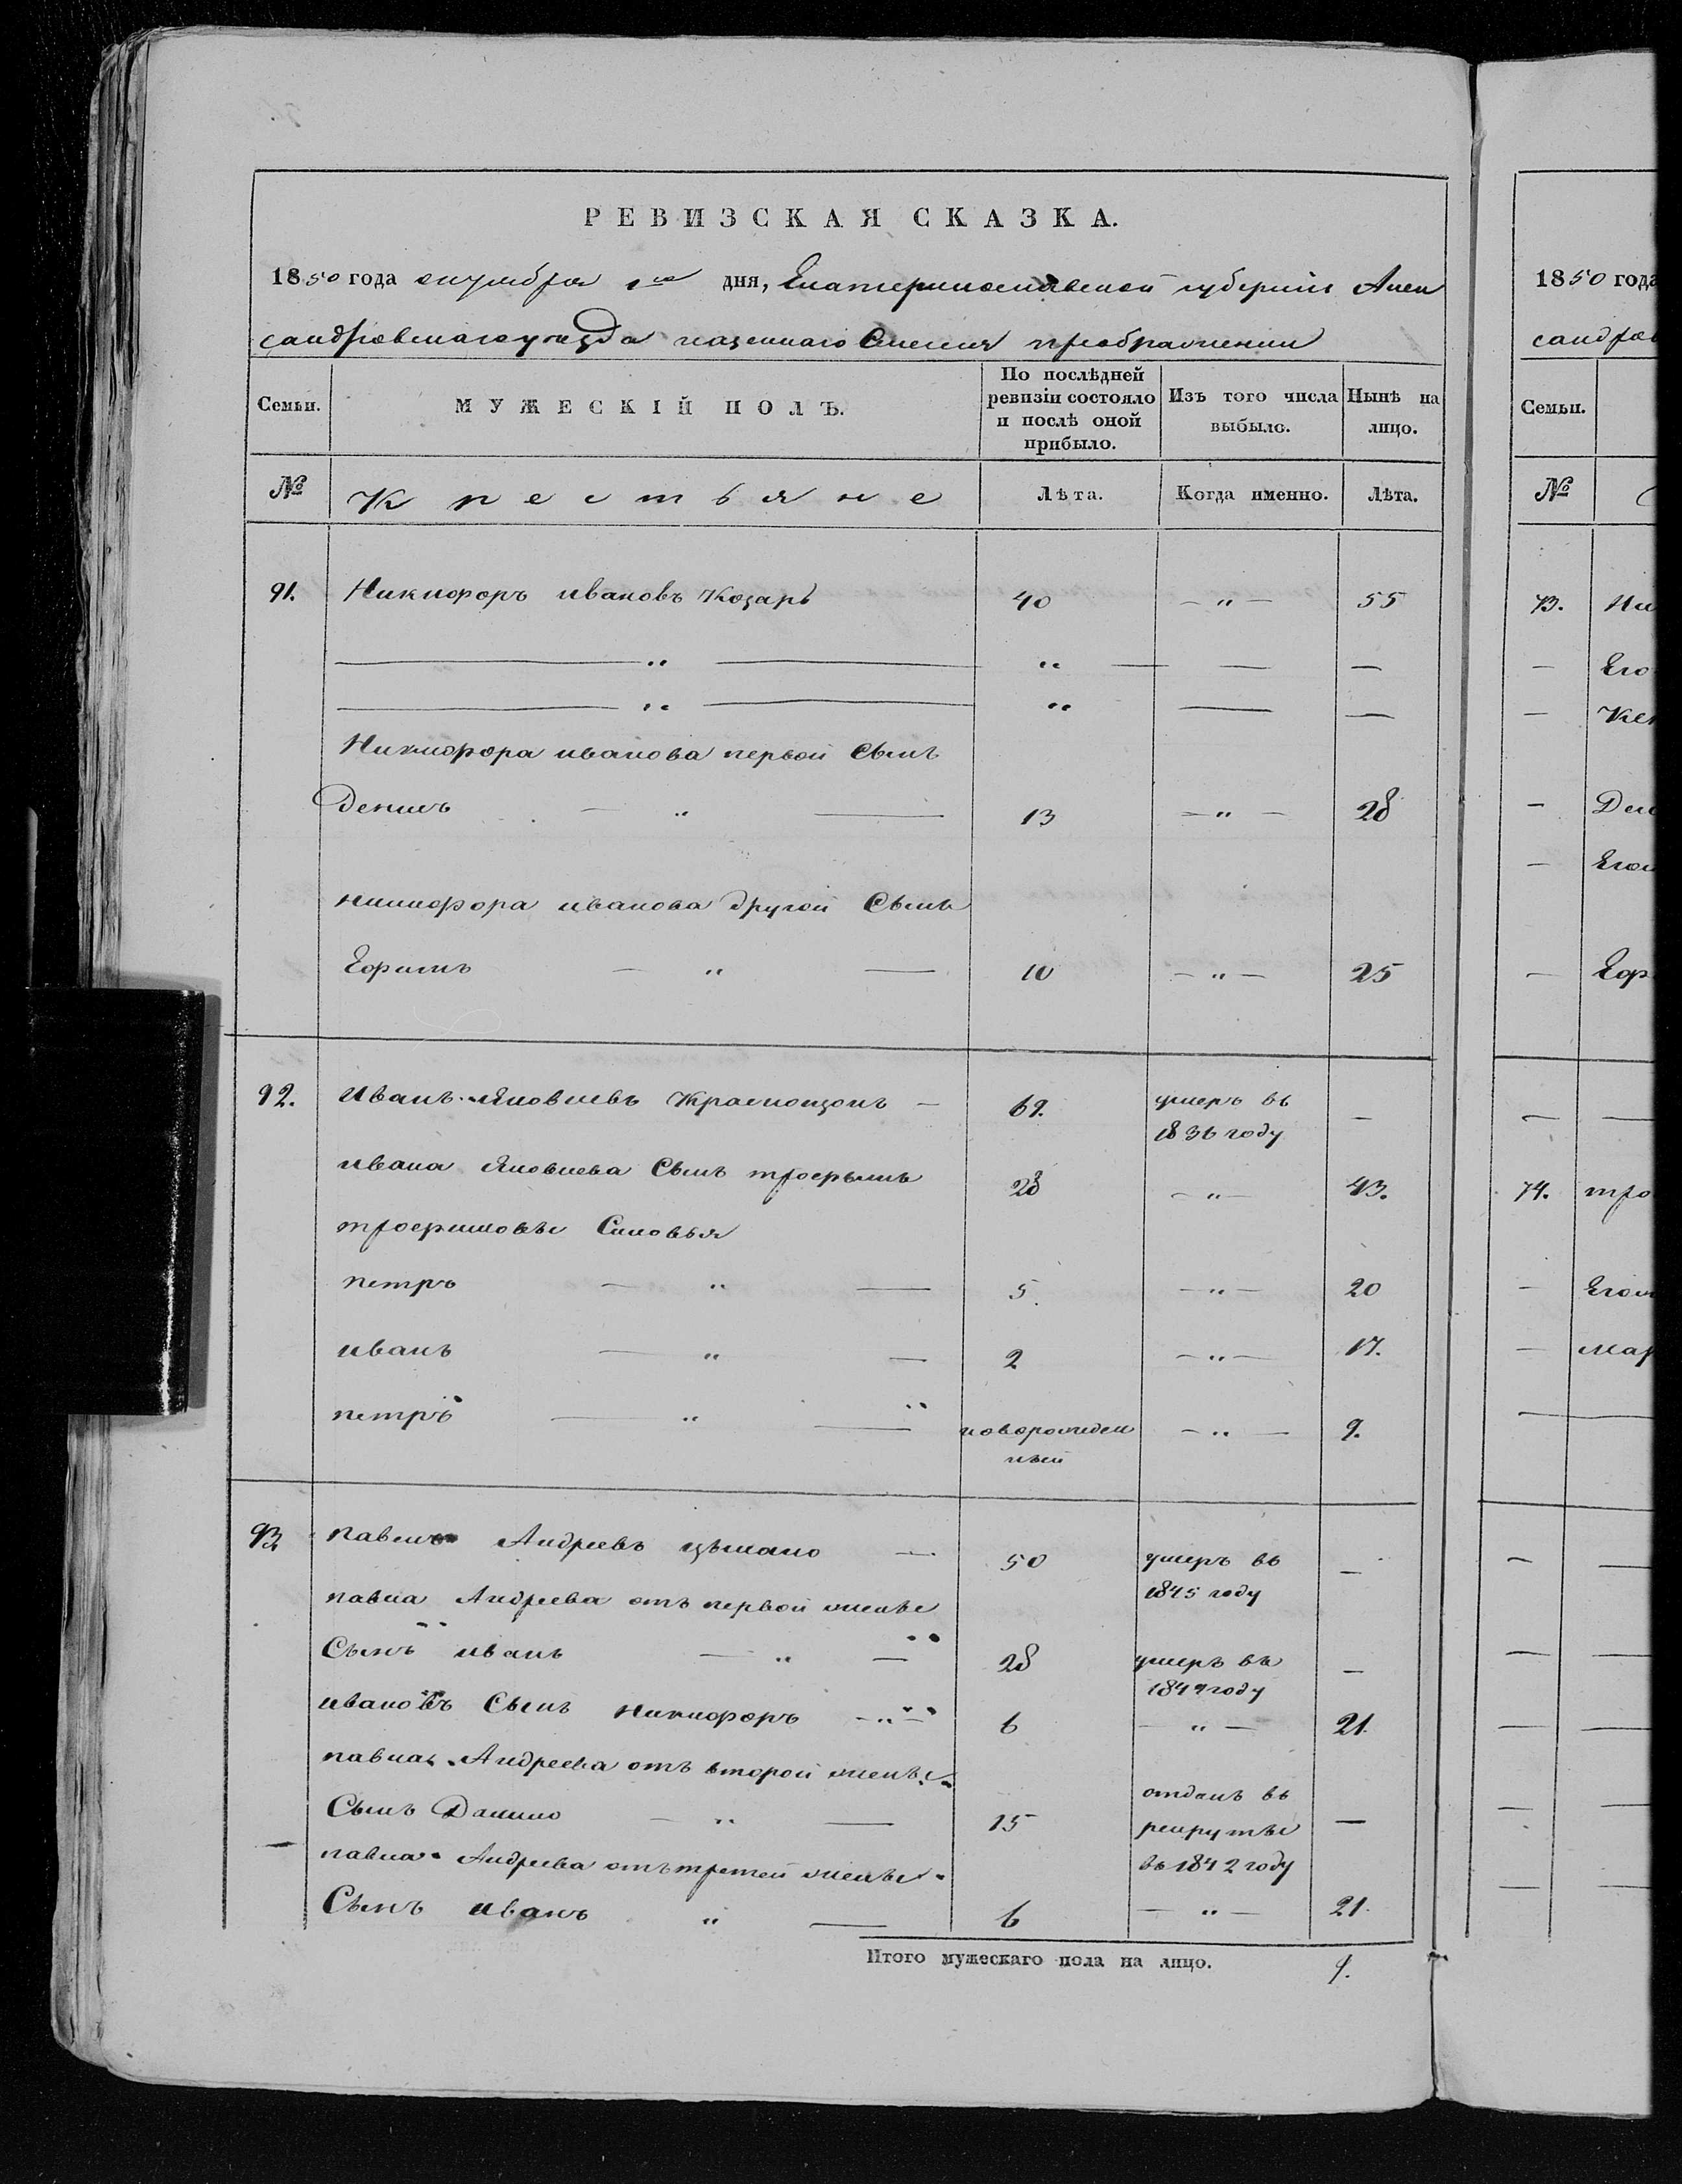 РЕВИЗСКАЯ СКАЗКА.
1850 года октября 1го дня, Екатеринославской губернiи Алек
сандровскаго уѣзда казеннаго Селенiя преображенки
Семьи.
МУЖЕСКIЙ ПОЛЪ.
По послѣдней
ревизiи состояло
и послѣ оной
прибыло.
Изъ того числа
выбыло.
Нынѣ на
лицо.
№ Крестьяне Лѣта. Когда именно. Лѣта.
91. Никифоръ ивановъ Козарь 40 — " — 55
— " — " — — —
— " — " — —
Никифора иванова первой Сынъ
Денисъ — " — 13 — " — 28
никифора иванова другой Сынъ
Ефимъ — " — 10 — " — 25
92. иванъ Яковлевъ — 69. умеръ въ —
1836 году
ивана Яковлева Сынъ трофымъ 28 — " — 43.
трофимовы Сыновья
петръ — " — 5. — " — 20
иванъ — " — 2 — " — 17.
петръ — " — новорожден — " — 9.
ный
93. павелъ Андреевъ — 50 умеръ въ —
1845 году
павла Андреева отъ первой жены
Сынъ иванъ — " — 28 умеръ въ —
1849 году
ивановъ Сынъ никифоръ — " — 6 — " — 21.
павла Андреева отъ второй жены
Сынъ Данило — " — 15 отданъ въ —
рекруты
въ 1842 году
павла Андреева отъ третей жены
Сынъ иванъ " — 6 — " — 21.
Итого мужескаго пола на лицо. 9.
1850 года
сандров
Семьи.
№
73. Ни
— Его
—
— Ден
— Его
— Еф
— —
74. тро
— Его
— мар